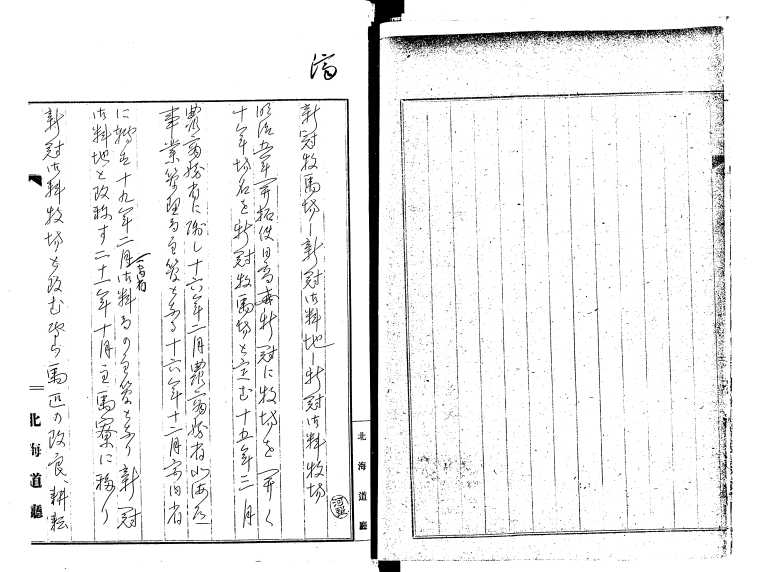 済
新冠牧馬場ー新冠御料地ー新冠御料牧場
明治五年開拓使日高新冠に牧場を開く
十年場名を新冠牧馬場と定む十五年二月
農商務省に隷し十六年二月農商務省北海道
事業管理局主管となる十六年十二月宮内省
に転じ十九年二月宮内省御料局の主管となり新冠
御料地と改称す二十一年十月主馬寮に移り
新冠御料牧場と改む 馬匹の改良、耕耘
北海道廳
北海道廳